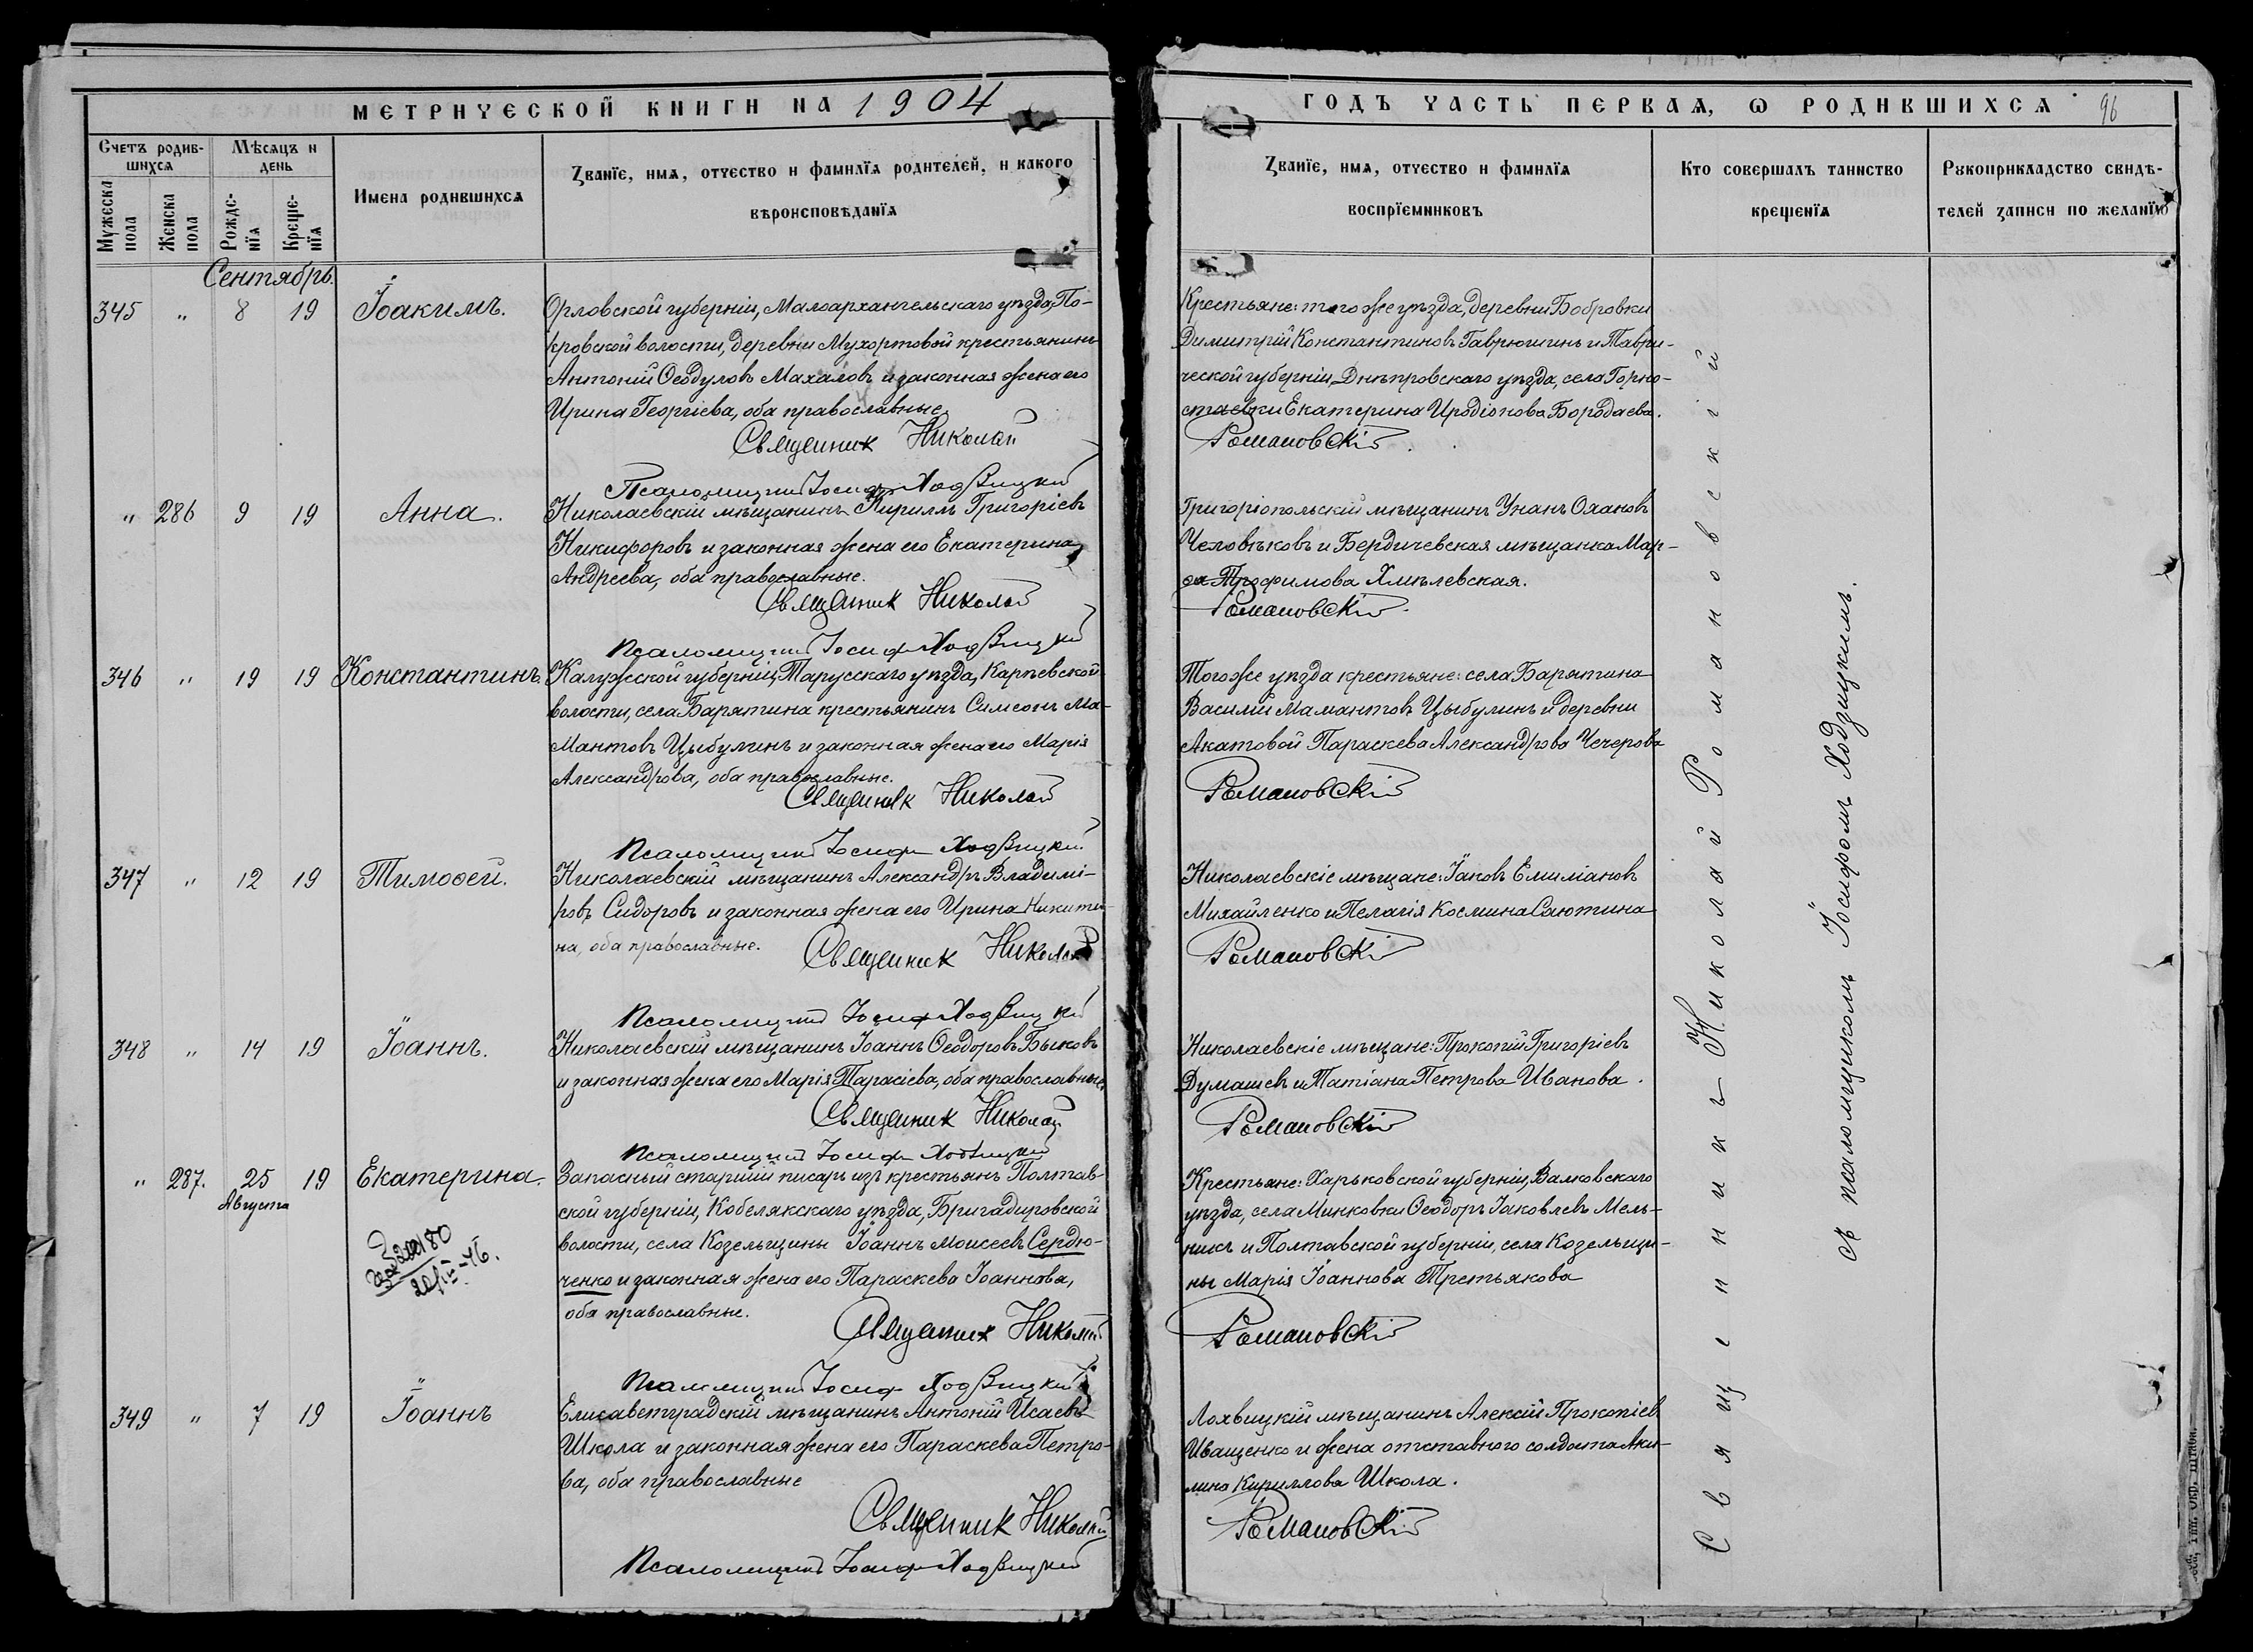 МЕТРИЧЕСКОЙ КНИГИ НА 1904
Счетъ родив-
шихся
Мѣсяцъ и
день
Мужеска
пола
Женска
пола
Рожде-
нія
Креще-
нія
Имена родившихся
Званіе, имя, отчество и фамилія родителей, и какого
вѣроисповѣданія
Сентябрь.
345 " 8 19 Іоакимъ.
Орловской губерніи, Малоархангельскаго уѣзда, По-
кровской волости, деревни Мухортовой крестьянинъ
Антоній Ѳеодуловъ Махаловъ и законная жена его
Ирина Георгіева, оба православные.
Священник Николай
Псаломщикъ Іосифъ Ходзицкій
" 286 9 19 Анна.
Николаевскій мѣщанинъ Кириллъ Григоріевъ
Никифоровъ и законная жена его Екатерина
Андреева, оба православные.
Священник Николай
Псаломщикъ Іосифъ Ходзицкій
346 " 19 19 Константинъ.
Калужской губерніи, Тарусскаго уѣзда, Карпевской
волости, села Барятина крестьянинъ Симеонъ Ма-
мантовъ Цыбулинъ и законная жена его Марія
Александрова, оба православные.
Священник Николай
Псаломщикъ Іосифъ Ходзицкій
347 " 12 19 Тимоѳей.
Николаевскій мѣщанинъ Александръ Владимі-
ровъ Сидоровъ и законная жена его Ирина Никити-
на, оба православные.
Священник Николай
Псаломщикъ Іосифъ Ходзицкій
348 " 14 19 Іоаннъ.
Николаевскій мѣщанинъ Іоаннъ Ѳеодоровъ Быковъ
и законная жена его Марія Тарасіева, оба православные.
Священник Николай
Псаломщикъ Іосифъ Ходзицкій
" 287. 25 19 Екатерина.
Августа
20/IV-76.
Запасный старшій писарь изъ крестьянъ Полтав-
ской губерніи, Кобелякскаго уѣзда, Бригадировской
волости, села Козельщины Іоаннъ Моисеевъ Сердю-
ченко и законная жена его Параскева Іоаннова,
оба православные.
Священник Николай
Псаломщикъ Іосифъ Ходзицкій
349 " 7 19 Іоаннъ
Елисаветградскій мѣщанинъ Антоній Исаевъ
Школа и законная жена его Параскева Петро-
ва, оба православные
Священник Николай
Псаломщикъ Іосифъ Ходзицкій
ГОДЪ ЧАСТЬ ПЕРВАЯ, Ѡ РОДИВШИХСЯ
96
Званіе, имя, отчество и фамилія
воспріемниковъ
Кто совершалъ таинство
крещенія
Рукоприкладство свидѣ-
телей записи по желанію
Крестьяне: того же уѣзда, деревни Бобровки
Димитрій Константиновъ Гаврюшинъ и Таври-
ческой губерніи, Днѣпровскаго уѣзда, села Горно-
стаевки Екатерина Иродіонова Бородаева.
Романовскій
Григоріопольскій мѣщанинъ Унанъ Охановъ
Человѣковъ и Бердичевская мѣщанка Мар-
ѳа Трофимова Хмѣлевская.
Романовскій
Того же уѣзда крестьяне: села Барятина
Василій Мамантовъ Цыбулинъ и деревни
Акатовой Параскева Александрова Чечерова
Романовскій
Николаевскіе мѣщане: Іаковъ Емиліановъ
Михайленко и Пелагія Космина Саютина
Романовскій
Николаевскіе мѣщане: Прокопій Григоріевъ
Думашевъ и Татіана Петрова Иванова.
Романовскій
Крестьяне: Харьковской губерніи, Валковскаго
уѣзда, села Минковки Ѳеодоръ Іаковлевъ Мель-
никъ и Полтавской губерніи, села Козельщи-
ны Марія Іоаннова Третьякова
Романовскій
Лохвицкій мѣщанинъ Алексій Прокопіевъ
Иващенко и жена отставного солдата Аки-
лина Кириллова Школа.
Романовскій
Священникъ Николай Романовскій
съ псаломщикомъ Іосифомъ Ходзицкимъ.